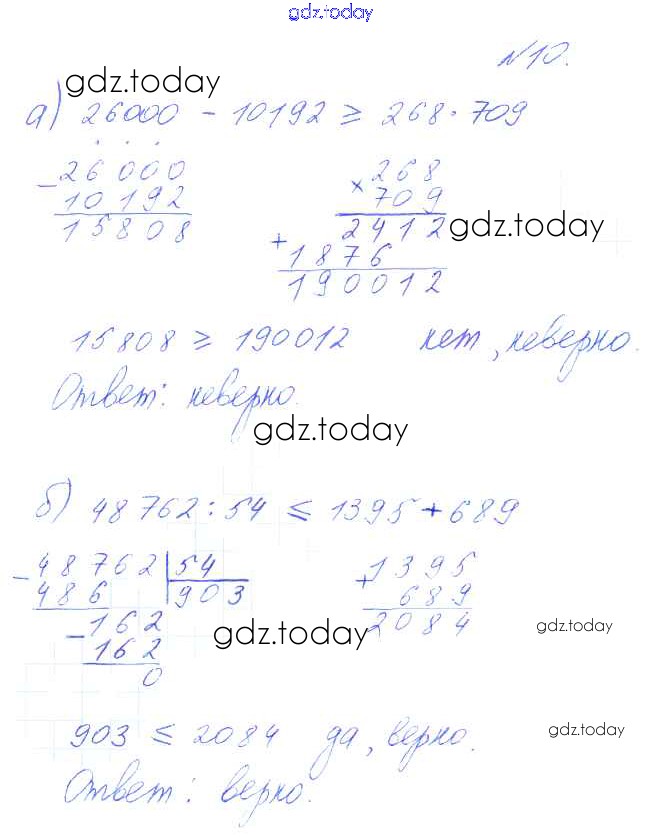 gdz.today
№10.
gdz.today
а) 26000 - 10192 ≥ 268 · 709
- 26000
10192
15808
× 268
709
2412
+ 1876
190012
gdz.today
15808 ≥ 190012 нет, неверно.
Ответ: неверно.
gdz.today
б) 48762 : 54 ≤ 1395 + 689
- 48762 | 54
486 903
- 162
162
0
+ 1395
689
2084
gdz.today
gdz.today
903 ≤ 2084 да, верно.
gdz.today
Ответ: верно.